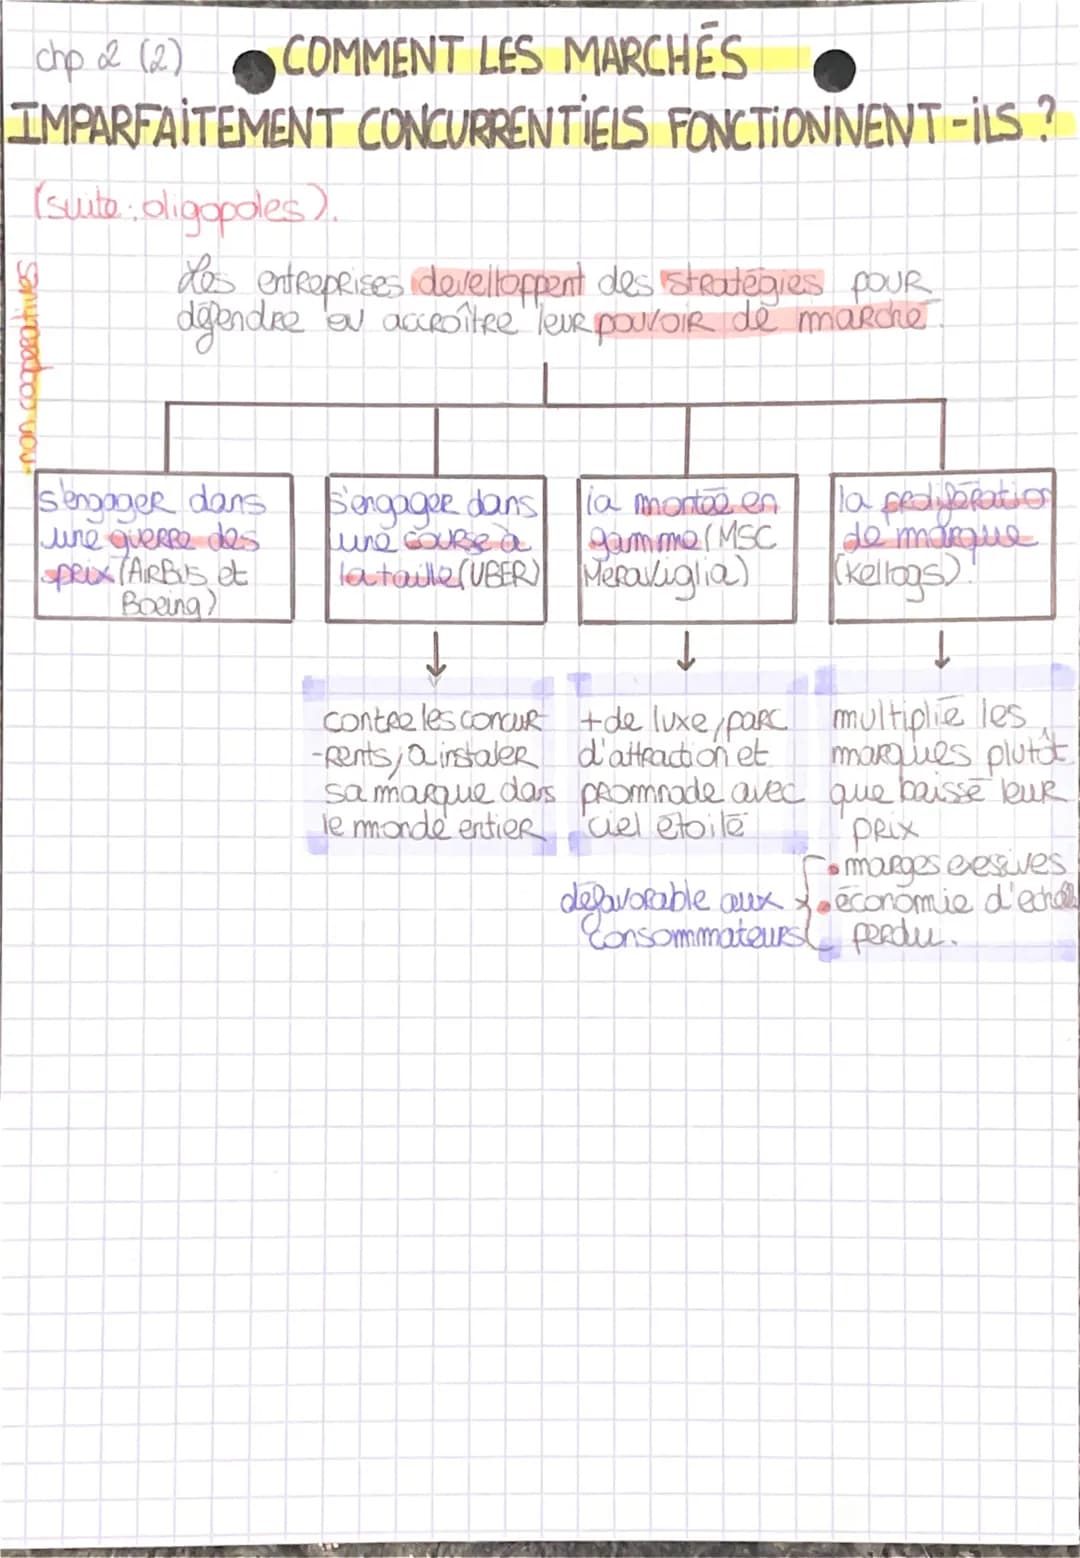 chp 2 (2)
COMMENT LES MARCHÉS
IMPARFAITEMENT CONCURRENTIELS FONCTIONNENT-ILS ?
(suite : oligopoles).
non coopératives
Les entreprises develloppent des stratégies pour
défendre ou accroître leur pouvoir de marché.
s'engager dans
une guerre des
prix (AIRBUS et
Boeing)
s'engager dans
une course à
la taille (UBER)
la montée en
gamme (MSC
Meraviglia)
la prolifération
de marque
(Kellogs).
contre les concur
-rents, a instaler
sa marque dans
le monde entier
+ de luxe, parc
d'attraction et
promnade avec
ciel étoilé
multiplie les
marques plutôt
que baissé leur
prix
• marges exessives
• économie d'échelle
perdu.
défavorable aux
consommateurs